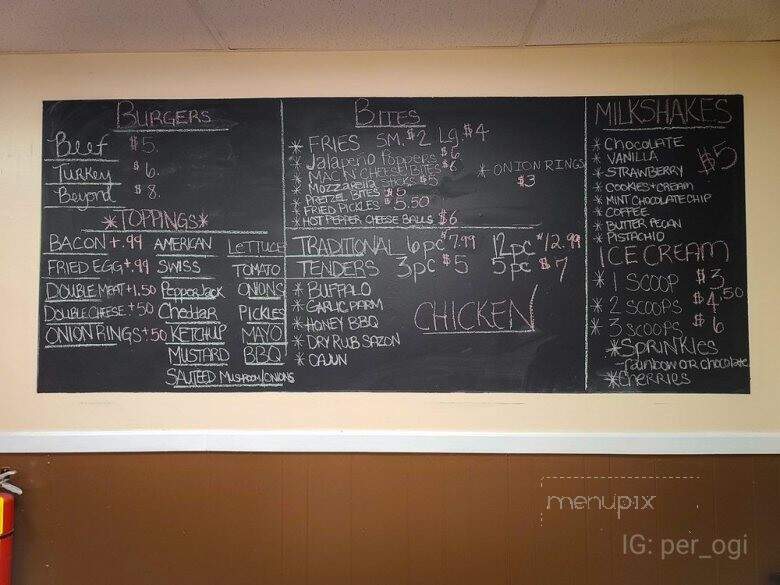 BURGERS
Beef $5.
Turkey $6.
Beyond $8.
*TOPPINGS*
BACON +.99 AMERICAN LETTUCE
FRIED EGG +.99 SWISS TOMATO
DOUBLE MEAT +1.50 PepperJack ONIONS
DOUBLE CHEESE +.50 Cheddar PICKLES
ONION RINGS +.50 KETCHUP MAYO
MUSTARD BBQ
SAUTEED MUSHROOM/ONIONS
BITES
* FRIES SM. $2 Lg $4
* Jalapeno Poppers $6
* MAC N CHEESE BITES $6
* Mozzarella sticks $5
* PRETZEL BITES $5
* FRIED PICKLES $5.50
* HOT PEPPER CHEESE BALLS $6
* ONION RINGS
$3
TRADITIONAL 6pc $7.99 12pc $12.99
TENDERS 3pc $5 5pc $7
* BUFFALO
* GARLIC PARM
* HONEY BBQ
* DRY RUB SAZON
* CAJUN
CHICKEN
MILKSHAKES
* Chocolate
* VANILLA
* STRAWBERRY
* COOKIES + CREAM
* MINT CHOCOLATE CHIP
* COFFEE
* BUTTER PECAN
* PISTACHIO
$5
ICE CREAM
* 1 SCOOP $3
* 2 SCOOPS $4.50
* 3 SCOOPS $6
*SPRINKLES
rainbow OR chocolate
*CHERRIES
menupix
IG: per_ogi